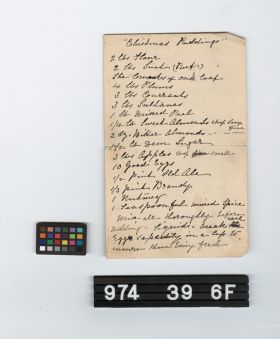 "Christmas Puddings"
2 lbs Flour
2 lbs Suet (Beef)
The Crumbs of one loaf
4 lbs Plums
3 lbs Currants
3 lbs Sultanas
1 lb Mixed Peel
1/2 lb Sweet Almonds chop very fine
2 ozs Bitter Almonds
lb Dem Sugar
3 lbs Apples small
10 Good Eggs
1/2 pint Old Ale
1/2 pint Brandy
1 Nutmeg
1 Teaspoonful mixed spice
Mix all thoroughly before
adding liquid. break each
Egg separately in a cup to
insure them being fresh
974 39 6F